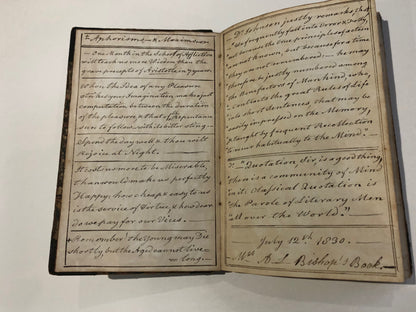 Aphorisms & Maxims &c
One Month in the School of Affliction
will teach us more Wisdom than the
grave precepts of Aristotle in 7 years.
When the Idea of any Pleasure
strikes your Imagination, make a just
computation between the duration
of the pleasure, & that of Repentance
sure to follow with its bitter sting.
Spend the day well & thou wilt
Rejoice at Night.
It costs us more to be Miserable,
than would make us perfectly
Happy; how cheap & easy to us
is the service of Virtue, & how dear
do we pay for our Vices.
Remember the Young may Die
shortly but the Aged cannot live
long.
Dr. Johnson justly remarks that
"We frequently fall into Error & Folly,
not because the true principles of action
are not known, but because for a time
they are not remembered: he may
therefore be justly numbered among
the Benefactors of Mankind, who
contracts the great Rules of Life,
into short Sentences, that may be
easily impressed on the Memory,
& taught by frequent Recollection
to occur habitually to the Mind."
"Quotation, Sir, is a good thing
there is a community of Mind
in it: Classical Quotation is
the Parole of Literary Men
all over the World."
July 12th 1830.
B L Bishop's Book.